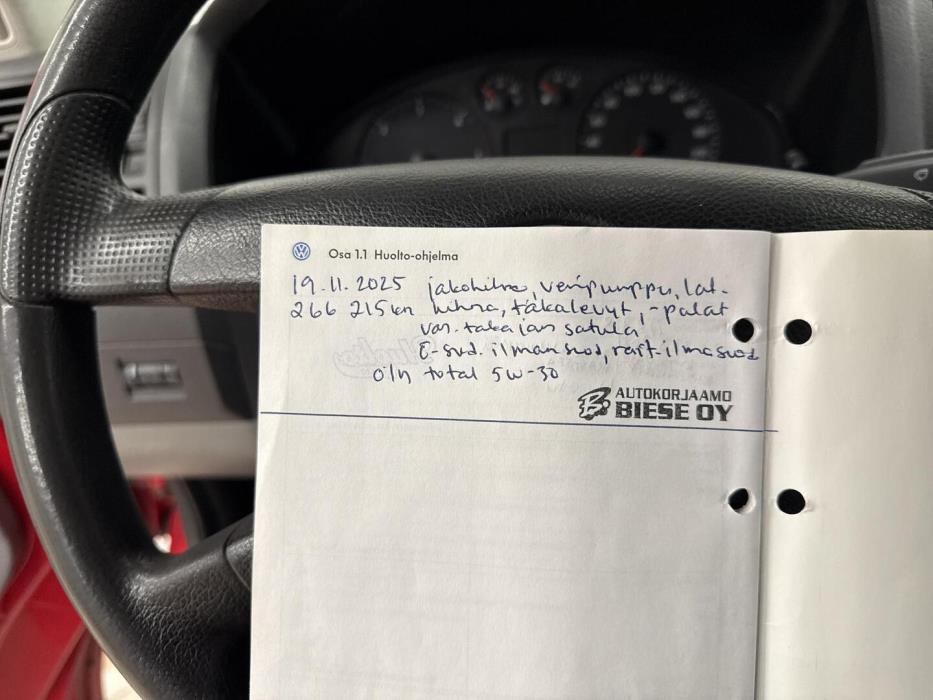 Osa 1.1 Huolto-ohjelma
19.11.2025 jakohihna, vesipumppu, lat.
266 215 km hihna, takalevyt, -palat
vas. taka jarr satula
ö-svd. ilmansuod, rait.ilmasuod
öljy total 5W-30
AUTOKORJAAMO
BIESE OY